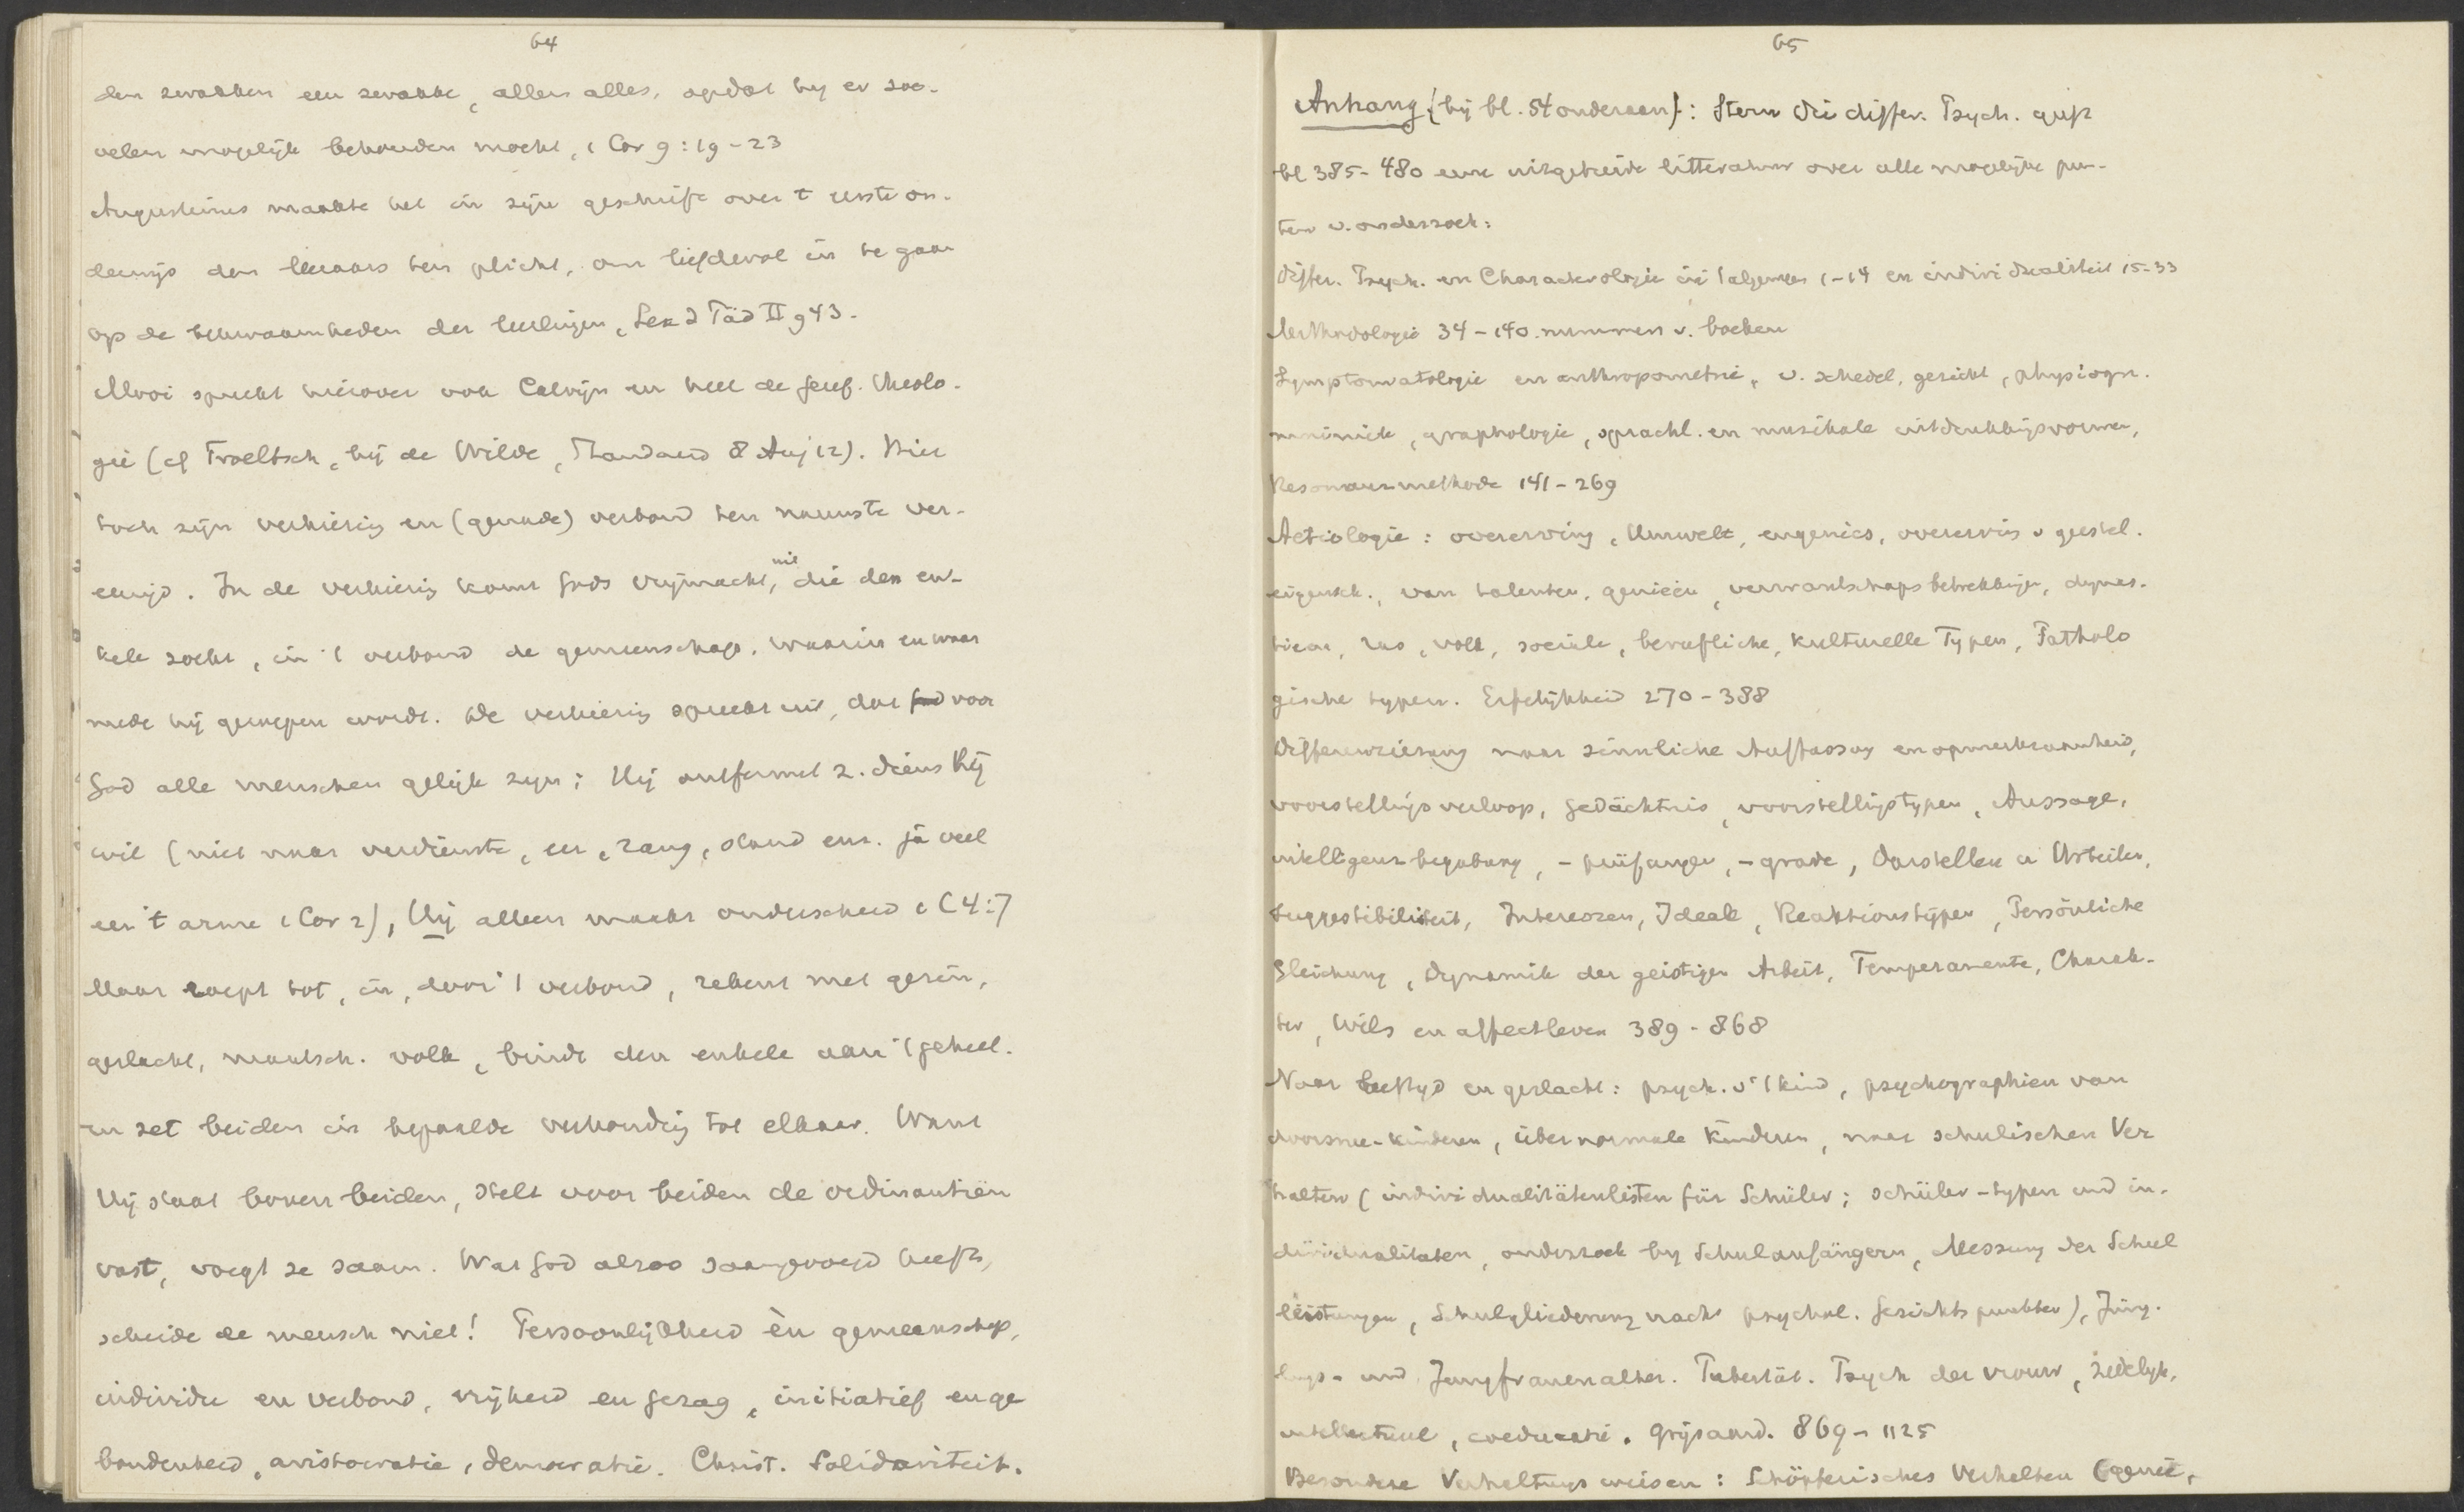 64
den zwakken een zwakke, allen alles, opdat hy er zoo-
velen mogelijk behouden mocht, 1 Cor 9:19-23
Augustinus maakte het in zijn geschrift over 't eerste on-
derwijs den leeraars ten plicht, om liefdevol in te gaan
op de bekwaamheden der leerlingen, Lex d Päd II 943.
Mooi spreekt hierover ook Calvijn en heel de Geref. theolo-
gie (cf Troeltsch, bij de Wilde, Standaard 8 Aug 12). Hier
toch zijn verkiezing en (genade) verbond ten nauwste ver-
eenigd. In de verkiezing komt Gods vrijmacht uit, die den en-
kele zoekt, in 't verbond de gemeenschap, waarin en waar
mede hij geroepen wordt. De verkiezing spreekt uit, dat voor
God alle menschen gelijk zijn; Hij ontfermt z. diens Hij
wil (niet naar verdienste, eer, rang, stand enz. ja veel
eer 't arme 1 Cor 2), Hij alleen maakt onderscheid 1 C 4:7
Maar roept tot, in, door 't verbond, rekent met gezin,
geslacht, maatsch. volk, bindt den enkele aan 't geheel.
en zet beiden in bepaalde verhouding tot elkaar. Want
Hij staat boven beiden, stelt voor beiden de ordinantiën
vast, voegt ze saam. Wat God alzoo saamgevoegd heeft,
scheide de mensch niet! Persoonlijkheid èn gemeenschap,
individu en verbond, vrijheid en gezag, initiatief en ge
bondenheid, aristocratie, democratie. Christ. Solidariteit.
65
Anhang {bij bl. 54 onderaan}: Stern Die differ. Psych. geeft
bl 385-480 eene uitgebreide litteratuur over alle mogelijke pun-
ten v. onderzoek:
Differ. Psych. en Charakterologie in 't algemeen 1-14 en individualiteit 15-33
Methodologie 34-140 nummers v. boeken
Symptomatologie en anthropometrie, v. schedel, gezicht, physiogn.
mimiek, graphologie, sprachl. en musikale uitdrukkingsvormen,
Resonanzmethode 141-269
Aetiologie: overerving, Umwelt, eugenics, overerving v geestel.
eigensch., van talenten, genieën, verwantschapsbetrekkingen, dynas-
tieën, ras, volk, sociale, berufliche, kulturelle Typen, Patholo
gische typen. Erfelijkheid 270-388
Differenzierung naar sinnliche Auffassung en opmerkzaamheid,
voorstellingsverloop, Gedächtnis, voorstellingstypen, Aussage,
intelligenz-begabung, -prüfungen, -grade, Darstellen u Urteilen,
Suggestibiliteit, Interessen, Ideale, Reaktionstypen, Persönliche
Gleichung, Dynamik der geistigen Arbeit, Temperamente, Charak-
ter, Wils en affectleven 389-868
Naar leeftijd en geslacht: psych. v 't kind, psychographieën van
doorsnee-kinderen, übernormale kinderen, naar schulischen Ver
halten (individualitätenlisten für Schüler; Schüler-typen und in-
dividualitäten, onderzoek by Schulanfängern, Messung der Schul
leistungen, Schulgliederung nach psychol. Gesichtspunkten), Jüng-
lings- und Jungfrauenalter. Pubertät. Psych der vrouw, zedelyk,
intellectueel, coeducatie. Grijsaard. 869-1125
Besondere Verhaltungsweisen: Schöpferisches Verhalten (genie,